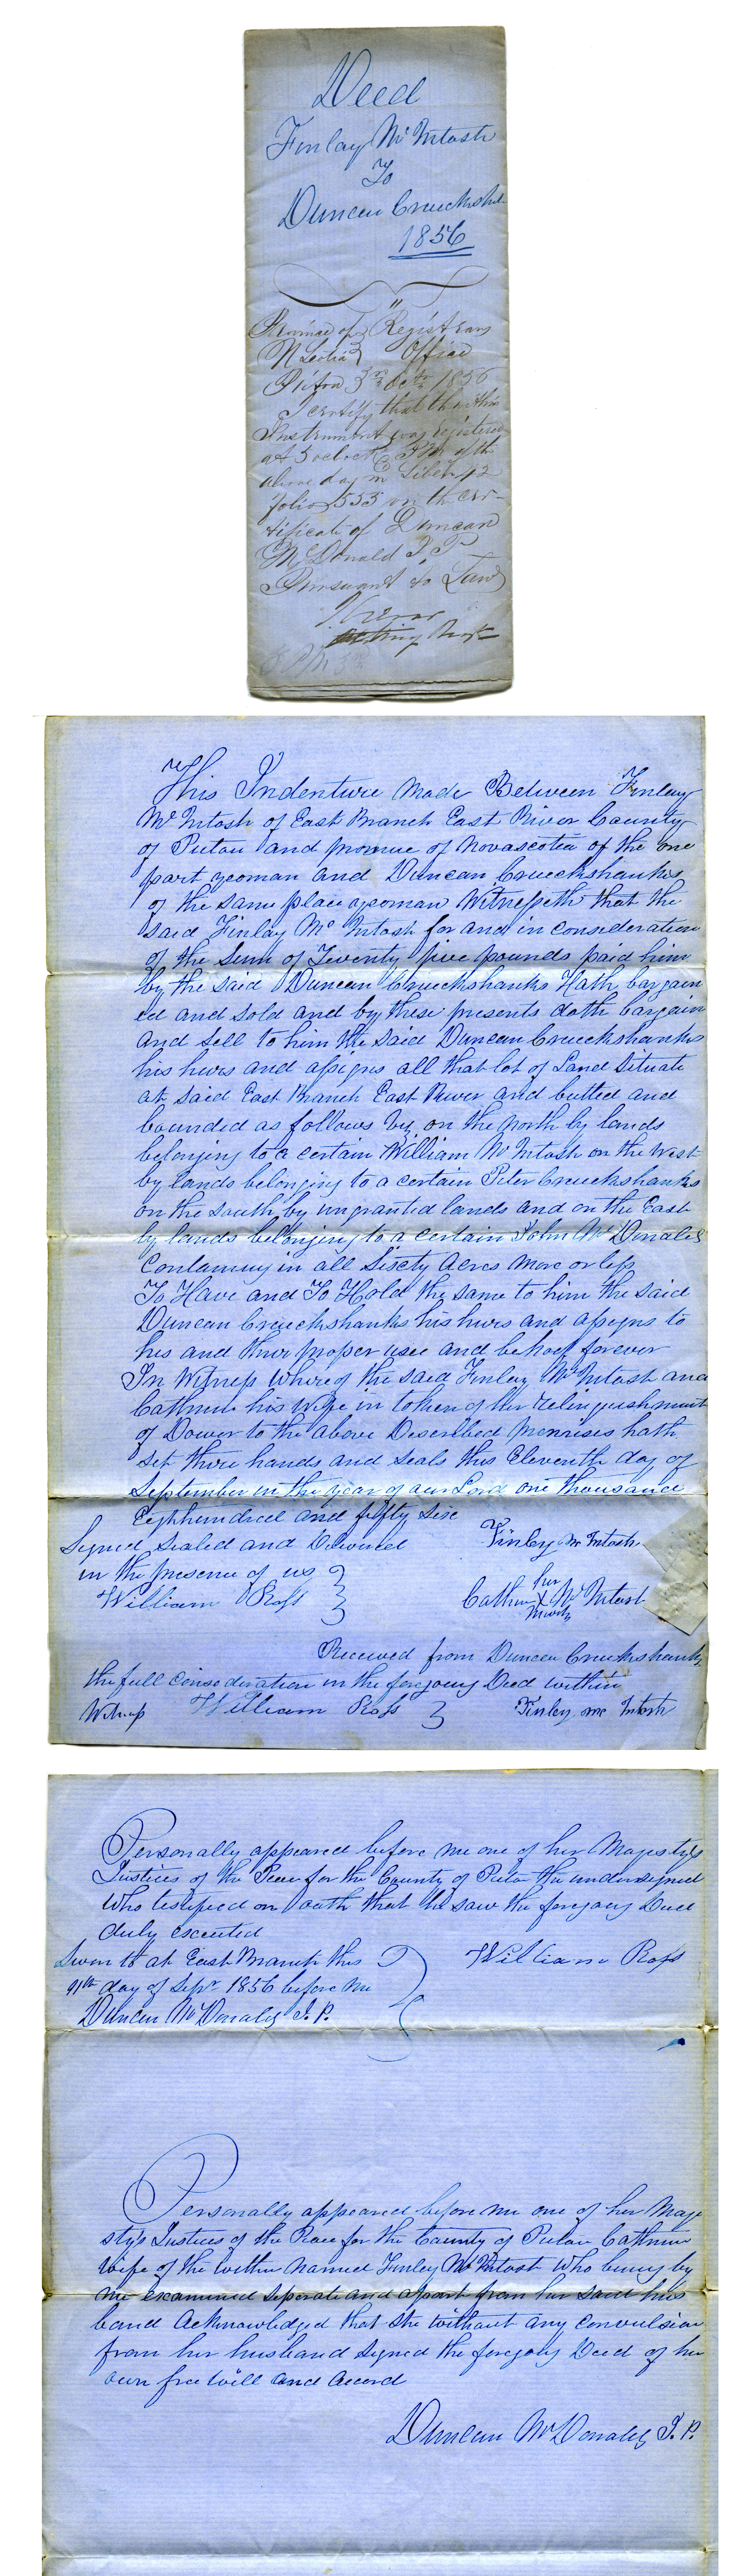 Deed
Finlay McIntosh
To
Duncan Cruckshank
1856
Province of } Registrars
N Scotia } Office
Pictou 3rd Octr 1856
I certify that the within
Instrument was registered
at 3 oclock PM of the
above day in Liber 42
folio 553 on the cer-
tificate of Duncan
McDonald J. P
Pursuant to Law
This Indenture Made Between Finlay
McIntosh of East Branch East River County
of Pictou and province of Novascotia of the one
part yeoman and Duncan Cruckshanks
of the same place yeoman Witnesseth that the
said Finlay McIntosh for and in consideration
of the Sum of Twenty five pounds paid him
by the said Duncan Cruckshanks Hath bargain
ed and sold and by these presents doth bargain
and sell to him the said Duncan Cruckshanks
his heirs and assigns all that lot of Land Situate
at said East Branch East River and butted and
bounded as follows viz on the North by lands
belonging to a certain William McIntosh on the West
by lands belonging to a certain Peter Cruckshanks
on the south by ungranted lands and on the East
by lands belonging to a certain John McDonald
Containing in all Sixty Acres More or less
To Have and To Hold the same to him the said
Duncan Cruckshanks his heirs and assigns to
his and their proper use and behoof forever
In Witness whereof the said Finlay McIntosh and
Cathrine his Wife in token of her relinquishment
of Dower to the above Described premises hath
set there hands and seals this Eleventh day of
September in the year of our Lord one thousand
Eighhundred and fifty six
Signed Sealed and Delivered Finley mcIntosh
in the presence of us }
William Ross } Cathrine her X Mark McIntosh
Received from Duncan Cruckshanks
the full consideration in the foregoing Deed within
Witness William Ross } Finley mcIntosh
Personally appeared before me one of her Majestys
Justices of the Peace for the County of Pictou the undersigned
who testified on oath that he saw the foregoing Deed
duly executed
Sworn to at East Branch this } William Ross
11th day of Sepr 1856 before me
Duncan McDonald J. P.
Personally appeared before me one of her Maje
stys Justices of the Peace for the County of Pictou Cathrine
Wife of the within Named Finley McIntosh who being by
me examined Seperate and apart from her said hus
band Acknowledged that she without any Convulsion
from her husband signed the foregoing Deed of her
own free will and accord
Duncan McDonald J. P.